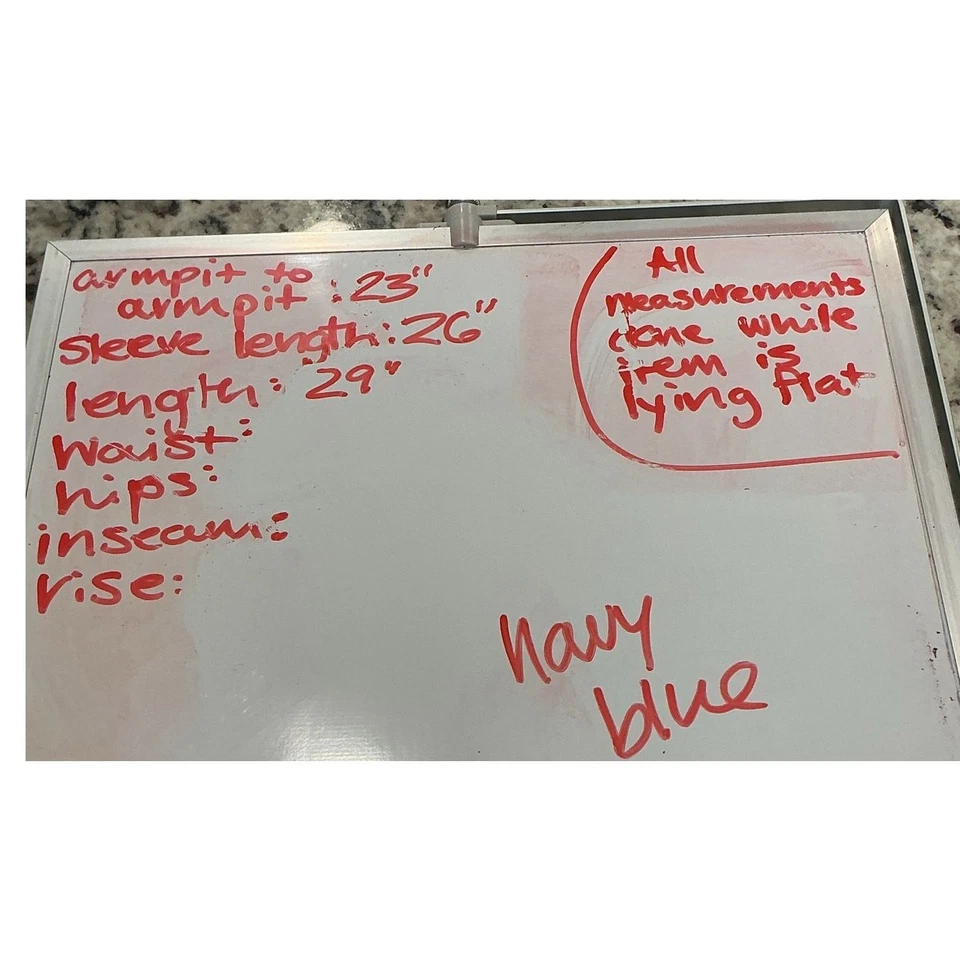 armpit to
armpit : 23"
sleeve length: 26"
length: 29"
waist:
hips:
inseam:
rise:
All
measurements
done while
item is
lying flat
navy
blue